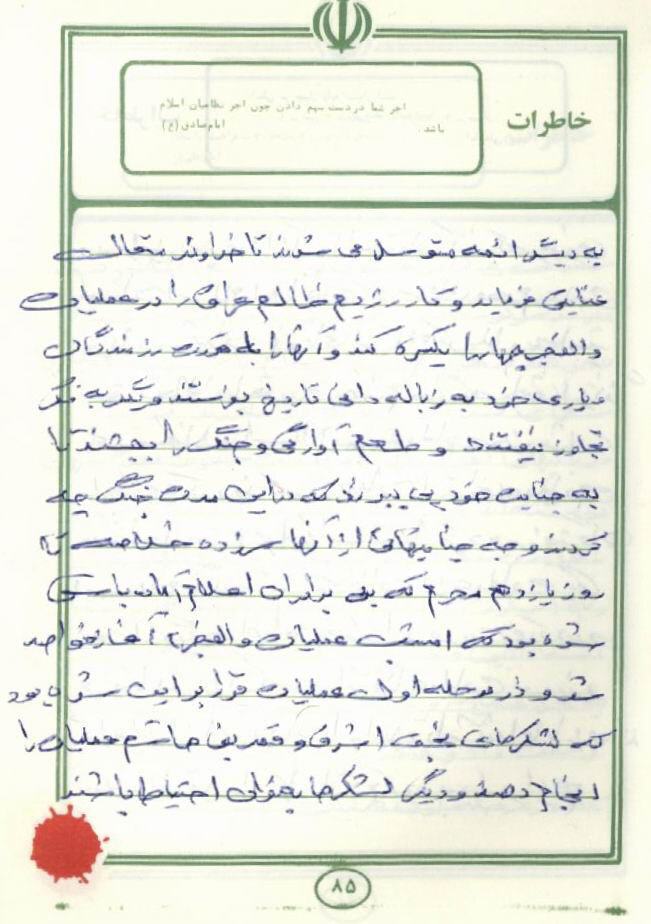 خاطرات
اجر شما در دست سهم دادن چون اجر نظامیان اسلام
باشد. امام صادق (ع)
به دیگر ائمه متوسل می شوند تا خداوند متعال
عنایتی فرماید و کار رژیم ظالم عراق را در عملیات
والفجر چهار را یکسره کند و آنها را به قدرت رزمندگان
و یاری خود به زباله دانی تاریخ بفرستند و دیگر به فکر
تجاوز نیفتند و طعم آوارگی و جنگ را بچشند تا
به جنایت خود پی ببرند که در این مدت جنگ چه
کردند و چه جنایتهائی از آنها سرزده خلاصه تا
روز یازدهم محرم که بی برادران اعلام آماده باشی
شده بود که امشب عملیات والفجر ۴ آغاز خواهد
شد و در مرحله اول عملیات قرار بر این شده بود
که لشکرهای نجف اشرف و قمر بنی هاشم عملیات را
انجام دهند و دیگر لشکرها بعنوان احتیاط باشند
۸۵